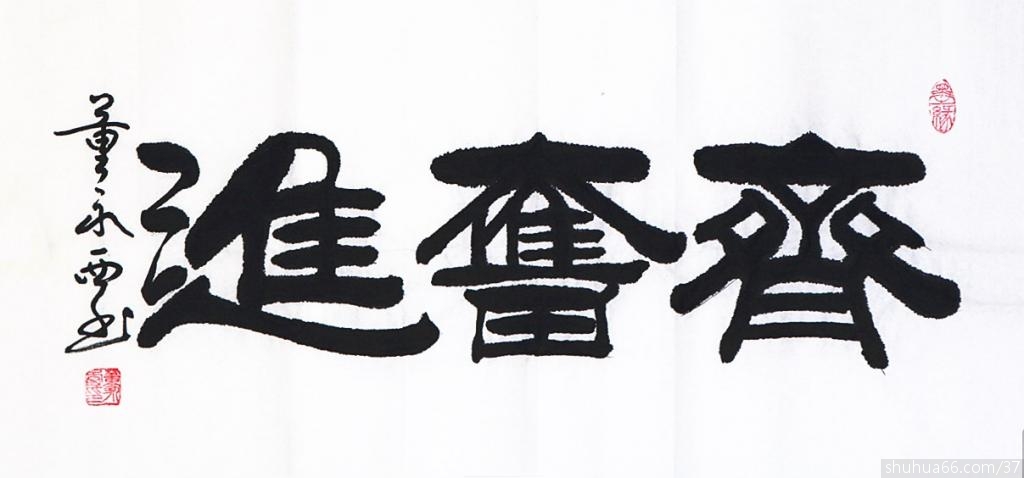 齊奮進
董永西書
shuhua66.com/37